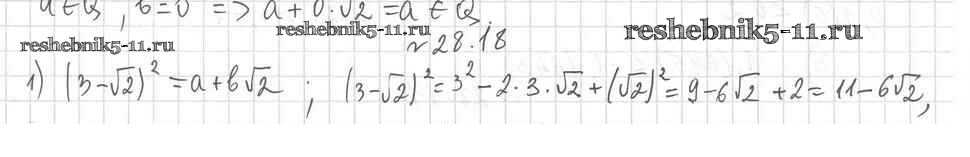 a ∈ Q, b=0 => a+0·√2 = a ∈ Q.
reshebnik5-11.ru reshebnik5-11.ru reshebnik5-11.ru
№28.18
1) (3-√2)² = a+b√2 ; (3-√2)² = 3² - 2·3·√2 + (√2)² = 9-6√2 +2 = 11-6√2,